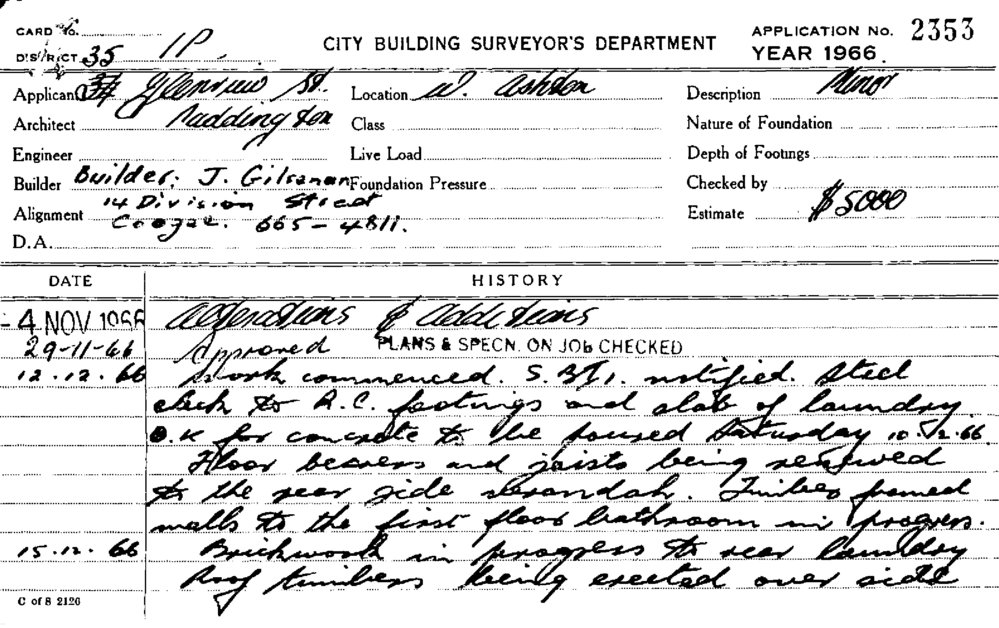 CARD No.
DISTRICT 35 IP CITY BUILDING SURVEYOR'S DEPARTMENT APPLICATION No. 2353
YEAR 1966.
Applicant 34 Glenview St. Location W. Ashton Description Minor
Architect Paddington Class Nature of Foundation
Engineer Live Load Depth of Footings
Builder Builder: J. Gilsenan Foundation Pressure Checked by
Alignment 14 Division Street Estimate $5000
Coogee. 665-4811.
D.A.
DATE HISTORY
-4 NOV 1966 Alterations & additions
29-11-66 Approved PLANS & SPECN. ON JOB CHECKED
12.12.66 Work commenced. notified. Steel
check to R.C. footings and slab of laundry
O.K for concrete to be poured Saturday 10.12.66
Floor bearers and joists being renewed
to the rear side verandah. Timber framed
walls to the first floor bathroom in progress.
15.12.66 Brickwork in progress to rear laundry
Roof timbers being erected over side
C of S 2126